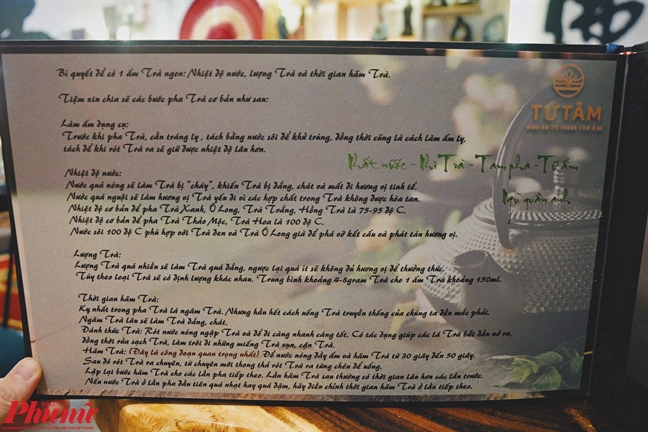 Bí quyết để có 1 ấm Trà ngon: Nhiệt độ nước, lượng Trà và thời gian hãm Trà.
Tiệm xin chia sẻ các bước pha Trà cơ bản như sau:
TỪ TÂM
BÌNH AN TỪ TRONG TÂM
Làm ấm dụng cụ:
Trước khi pha Trà, cần tráng ly, tách bằng nước sôi để khử trùng, đồng thời cũng là cách làm ấm ly,
tách để khi rót Trà ra sẽ giữ được nhiệt độ lâu hơn.
Nhất nước - Nhì Trà - Tam pha - Tứ ấm
Ngũ quần anh
Nhiệt độ nước:
Nước quá nóng sẽ làm Trà bị "cháy", khiến Trà bị đắng, chát và mất đi hương vị tinh tế.
Nước quá nguội sẽ làm hương vị Trà yếu đi vì các hợp chất trong Trà không được hòa tan.
Nhiệt độ cơ bản để pha Trà Xanh, Ô Long, Trà Trắng, Hồng Trà là 75-95 độ C.
Nhiệt độ cơ bản để pha Trà Thảo Mộc, Trà Hoa là 100 độ C.
Nước sôi 100 độ C phù hợp với Trà đen và Trà Ô Long già để phá vỡ kết cấu và phát tán hương vị.
Lượng Trà:
Lượng Trà quá nhiều sẽ làm Trà quá đắng, ngược lại quá ít sẽ không đủ hương vị để thưởng thức.
Tùy theo loại Trà sẽ có định lượng khác nhau. Trung bình khoảng 4-8gram Trà cho 1 ấm Trà khoảng 150ml.
Thời gian hãm Trà:
Kỵ nhất trong pha Trà là ngâm Trà. Nhưng hầu hết cách uống Trà truyền thống của chúng ta đều mắc phải.
Ngâm Trà lâu sẽ làm Trà đắng, chát.
Đánh thức Trà: Rót nước nóng ngập Trà và đổ đi càng nhanh càng tốt. Có tác dụng giúp các lá Trà bắt đầu nở ra,
đồng thời rửa sạch Trà, làm trôi đi những miếng Trà vụn, cặn Trà.
Hãm Trà: (Đây là công đoạn quan trọng nhất) Đổ nước nóng đầy ấm và hãm Trà từ 30 giây đến 50 giây.
Sau đó rót Trà ra chuyên, từ chuyên mới trong thả rót Trà ra từng chén để uống.
Lặp lại bước hãm Trà cho các lần pha tiếp theo. Lần hãm Trà sau thường có thời gian lâu hơn các lần trước.
Nếu nước Trà ở lần pha đầu tiên quá nhạt hay quá đậm, hãy điều chỉnh thời gian hãm Trà ở lần tiếp theo.
Phụ nữ